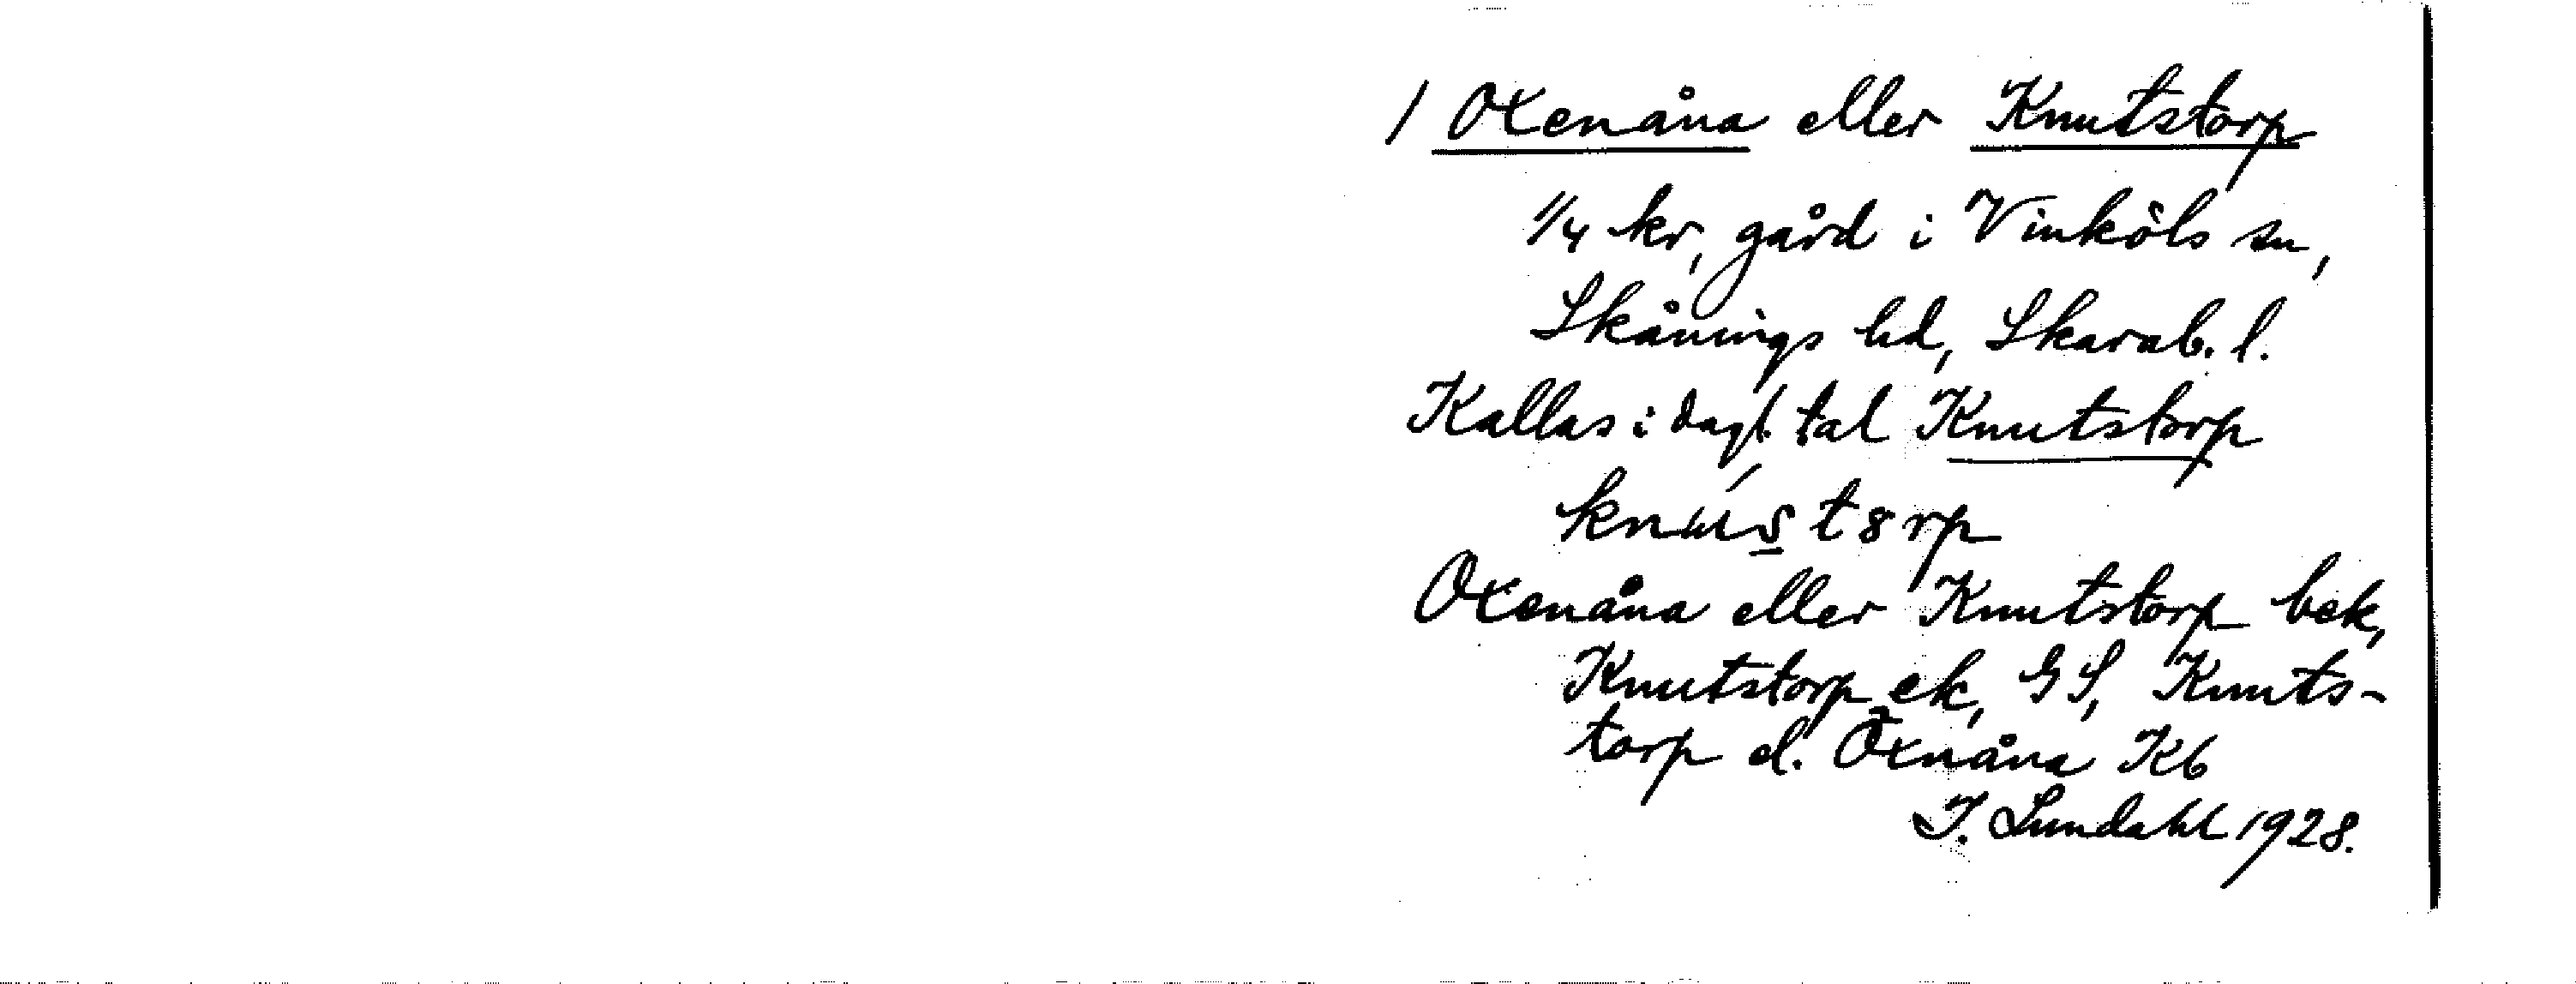 / Oxenåna eller Knutstorp
1/4 kr, gård i Vinköls sn,
Skånings hd, Skarab. l.
Kallas i dagl. tal Knutstorp
Oxenåna eller Knutstorp bek,
Knutstorp ek, GS, Knuts-
torp el. Oxnåna Kb
I. Lundahl 1928.